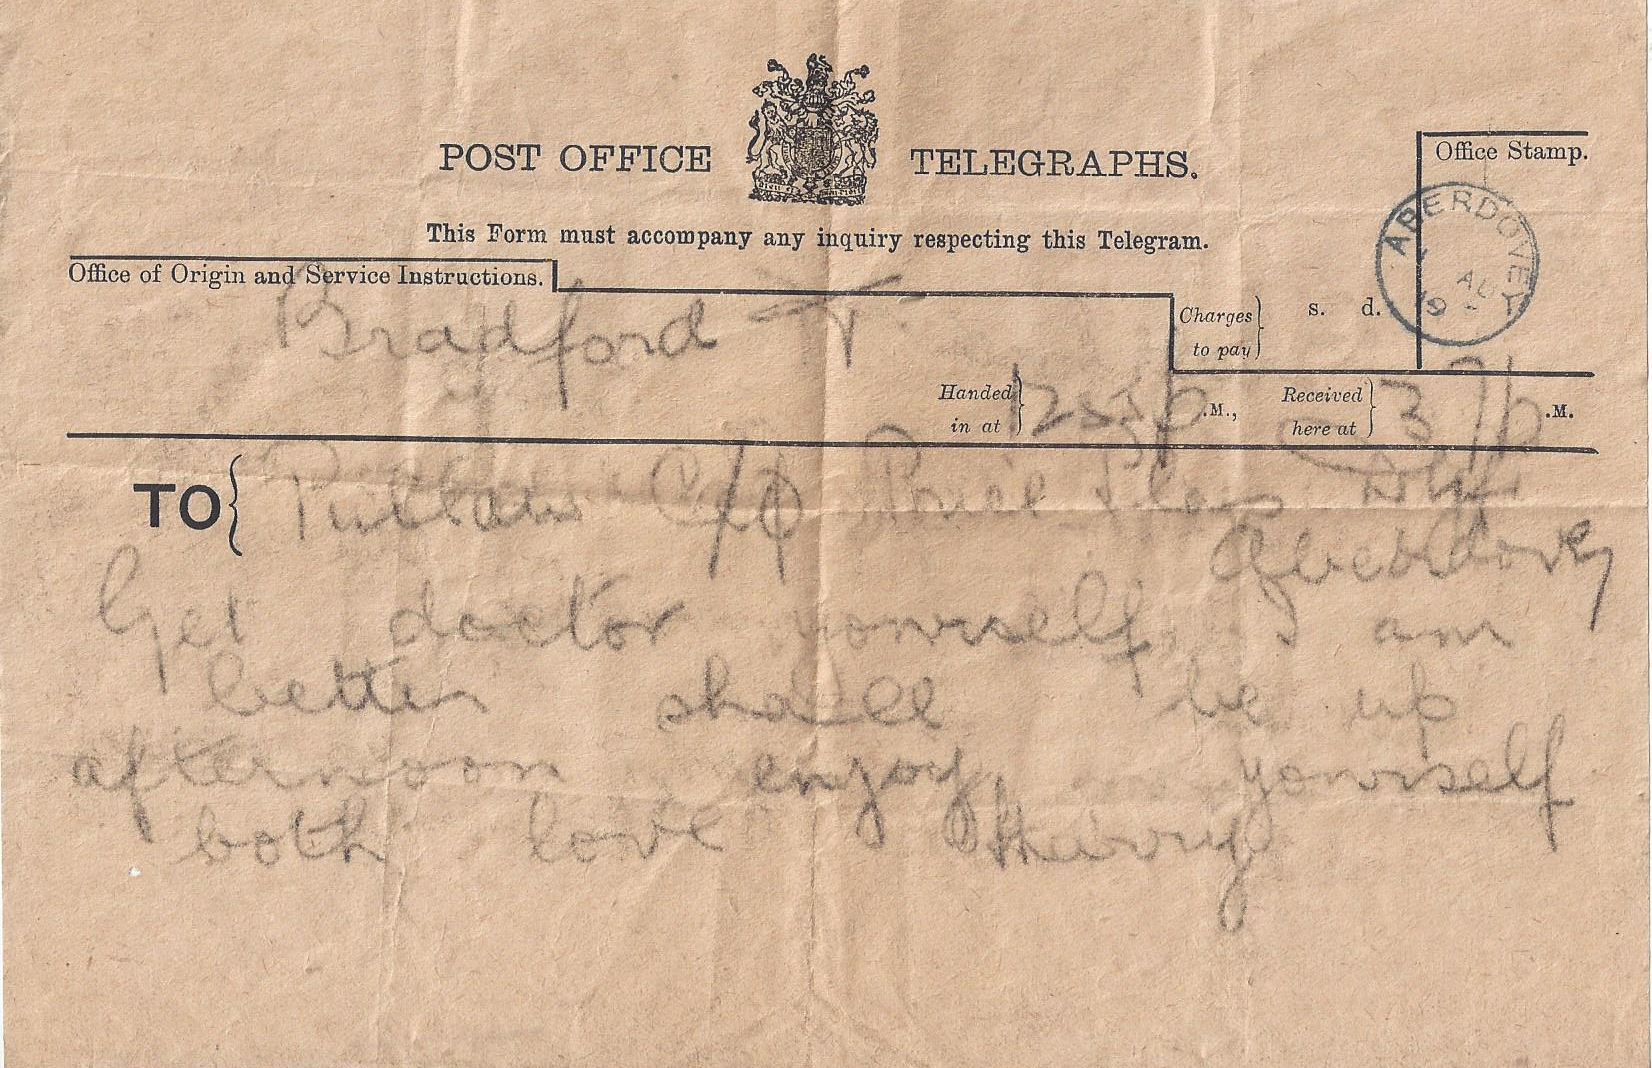 POST OFFICE TELEGRAPHS.
Office Stamp.
ABERDOVEY
AU
19
This Form must accompany any inquiry respecting this Telegram.
Office of Origin and Service Instructions.
Bradford T
Charges to pay } s. d.
Handed in at } 1255 p .M., Received here at } 3 7 p .M.
TO { C/o Dyfi
Aberdovey
Get doctor yourself I am
better shall be up
afternoon enjoy yourself
both love Harry